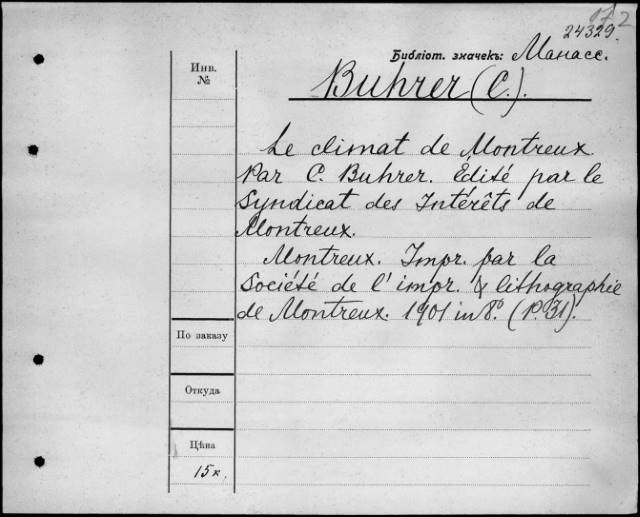 24329.
Библіот. значекъ: Манасс.
Инв. №
Buhrer (C.).
Le climat de Montreux
Par C. Buhrer. Édité par le
Syndicat des Intérêts de
Montreux.
Montreux. Impr. par la
Société de l'impr. & lithographie
de Montreux. 1901 in 8º. (P. 31).
По заказу
Откуда
Цѣна
15 к.